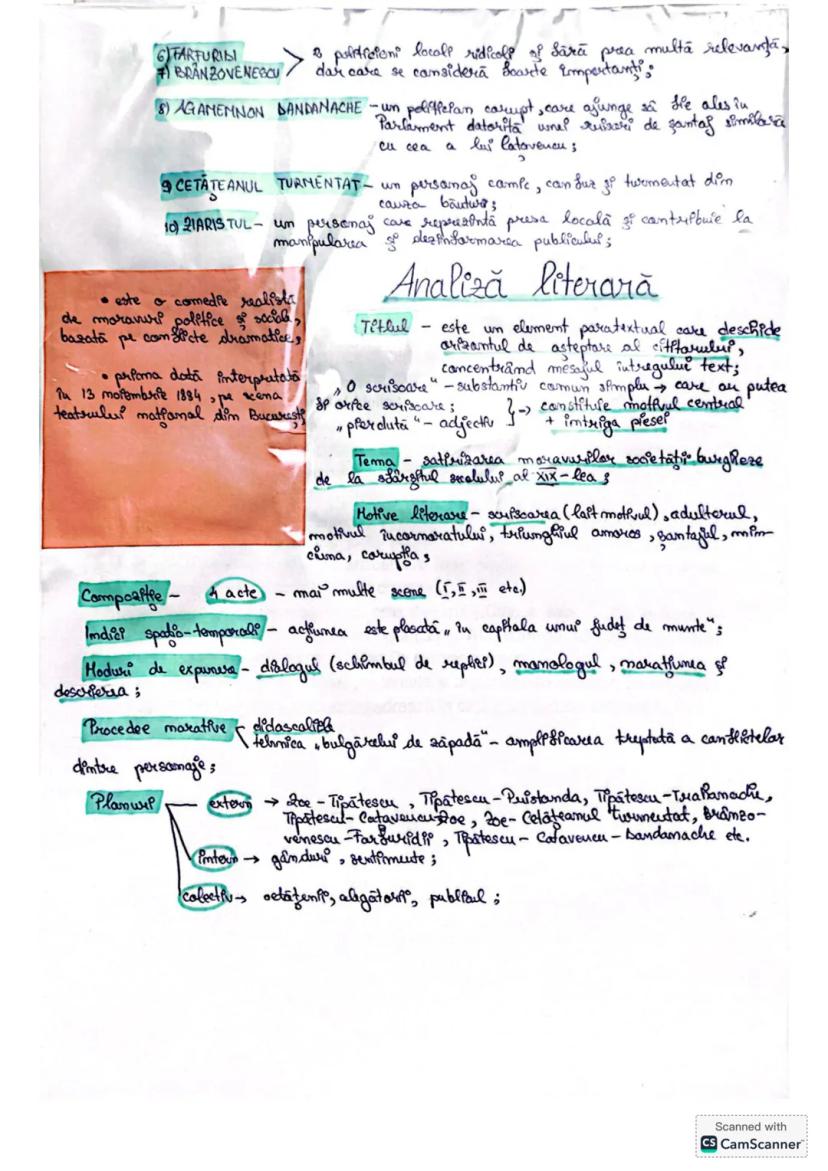 6) FARFURIDI
7) BRÂNZOVENESCU > 2 politicieni locali ridicoli și fără prea multă relevanță,
dar care se consideră foarte importanți;
8) AGAMEMNON DANDANACHE - un politician corupt, care ajunge să fie ales în
Parlament datorită unei scrisori de șantaj similară
cu cea a lui Cațavencu;
9) CETĂȚEANUL TURMENTAT - un personaj comic, confuz și turmentat din
cauza băuturii;
10) ZIARISTUL - un personaj care reprezintă presa locală și contribuie la
manipularea și dezinformarea publicului;
Analiză literară
• este o comedie realistă
de moravuri politice și sociale,
bazată pe conflicte dramatice;
• prima dată interpretată
în 13 noiembrie 1884, pe scena
teatrului național din București
Titlul - este un element paratextual care deschide
orizontul de așteptare al cititorului,
concentrând mesajul întregului text;
„O scrisoare" - substantiv comun simplu → care ar putea
fi orice scrisoare;
„pierdută" - adjectiv } → constituie motivul central
+ intriga piesei
Tema - satirizarea moravurilor societății burgheze
de la sfârșitul secolului al XIX-lea;
Motive literare - scrisoarea (laitmotivul), adulterul,
motivul încornoratului, triunghiul amoros, șantajul, min-
ciuna, corupția;
Compoziție - 4 acte - mai multe scene (I, II, III etc.)
Indici spațio-temporali - acțiunea este plasată „în capitala unui județ de munte";
Moduri de expunere - dialogul (schimbul de replici), monologul, narațiunea și
descrierea;
Procedee narative < didascaliile
tehnica „bulgărelui de zăpadă" - amplificarea treptată a conflictelor
dintre personaje;
Planuri - extern → Zoe - Tipătescu, Tipătescu - Pristanda, Tipătescu - Trahanache,
Tipătescu - Cațavencu - Zoe, Zoe - Cetățeanul turmentat, Brânzo-
venescu - Farfuridi, Tipătescu - Cațavencu - Dandanache etc.
intern → gânduri, sentimente;
colectiv → cetățenii, alegătorii, publicul;
Scanned with
CS CamScanner